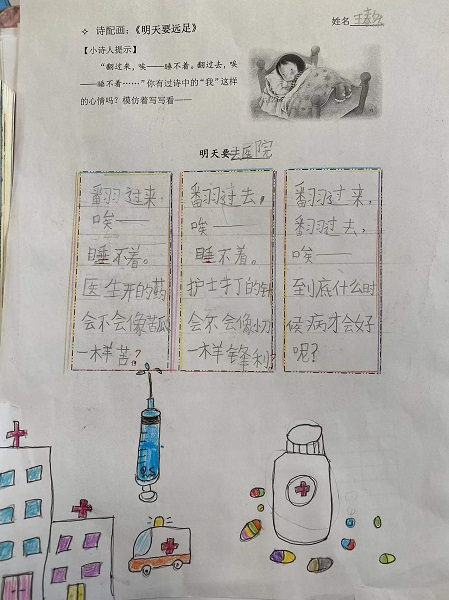 ✧ 诗配画：《明天要远足》
姓名 王
【小诗人提示】
“翻过来，唉——睡不着。翻过去，唉
——睡不着……”你有过诗中的“我”这样
的心情吗？模仿着写写看——
明天要去医院
翻过来，
唉——
睡不着。
医生开的药
会不会像苦瓜
一样苦？
翻过去，
唉——
睡不着。
护士打的针
会不会像小刀
一样锋利？
翻过来，
翻过去，
唉——
到底什么时
候病才会好
呢？